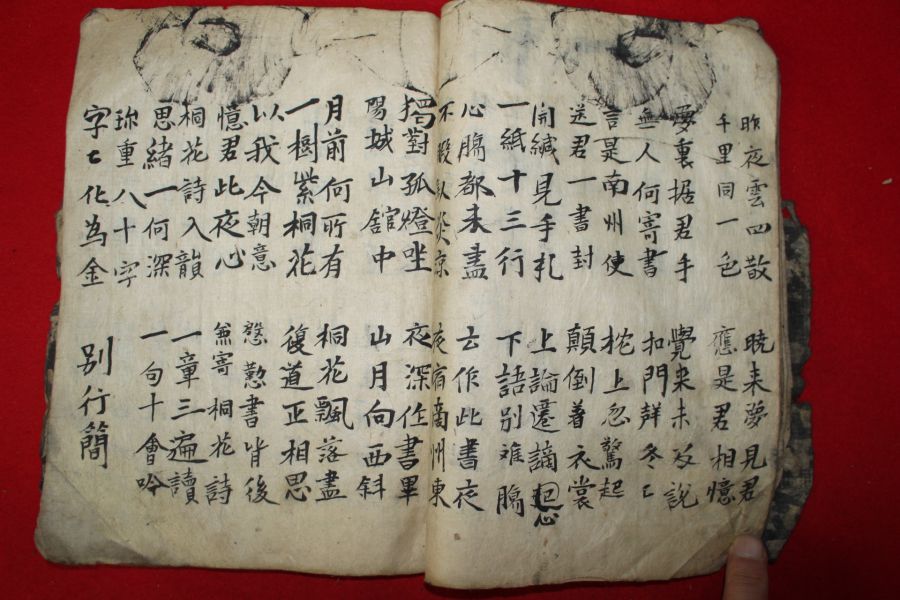 昨夜雲四散 曉来夢見君
千里同一色 應是君相憶
夢裏握君手 覺来未及說
無人何寄書 扣門冬〻
言是南州使 枕上忽驚起
送君一書封 顛倒着衣裳
開緘見手札 上論遷謫心
一紙十三行 下語別难膓
心膓都未盡 云作此書夜
不暇叙炎凉 夜宿商州東
獨對孤燈坐 夜深作書畢
陽城山舘中 山月向西斜
月前何所有 桐花飄落盡
一樹紫桐花 復道正相思
以我今朝意 慇懃書皆後
憶君此夜心 兼寄桐花詩
桐花詩入韻 一章三遍讀
思緒一何深 一句十會吟
珎重八十字
字〻化為金
別行簡